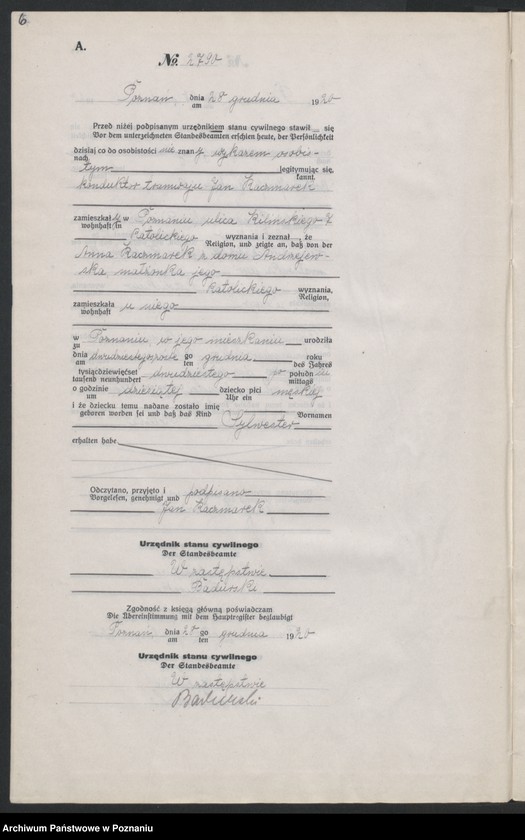 6.
A.
№ 2790
Poznań, dnia 28 grudnia 1920
am
Przed niżej podpisanym urzędnikiem stanu cywilnego stawił się
Vor dem unterzeichneten Standesbeamten erschien heute, der Persönlichkeit
dzisiaj co do osobistości nie znany, wykazem osobis-
nach
tym legitymując się,
kannt,
konduktor tramwaju Jan Kaczmarek
zamieszkały w Poznaniu ulica Kilińskiego 7
wohnhaft in
katolickiego wyznania i zeznał, że
Religion, und zeigte an, daß von der
Anna Kaczmarek z domu Andrzejew-
ska małżonka jego
katolickiego wyznania,
Religion,
zamieszkała u niego
wohnhaft
w Poznaniu w jego mieszkaniu urodziła
zu
dnia go grudnia roku
am ten des Jahres
tysiącdziewięćset dwudziestego po południu
tausend neunhundert mittags
o godzinie dziesiątej dziecko płci męskiej
um Uhr ein
i że dziecku temu nadane zostało imię
geboren worden sei und daß das Kind Vornamen
Sylwester
erhalten habe
Odczytano, przyjęto i podpisano
Vorgelesen, genehmigt und
Jan Kaczmarek
Urzędnik stanu cywilnego
Der Standesbeamte
W zastępstwie
Zgodność z księgą główną poświadczam
Die Übereinstimmung mit dem Hauptregister beglaubigt
Poznań, dnia 28 go grudnia 1920
am ten
Urzędnik stanu cywilnego
Der Standesbeamte
W zastępstwie
Archiwum Państwowe w Poznaniu